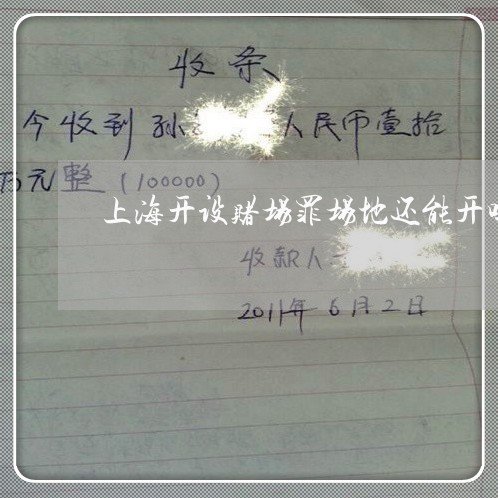 收条
今收到孙 人民币壹拾
万元整(100000)
上海开设赌场罪场地还能开
收款人
2011年6月2日